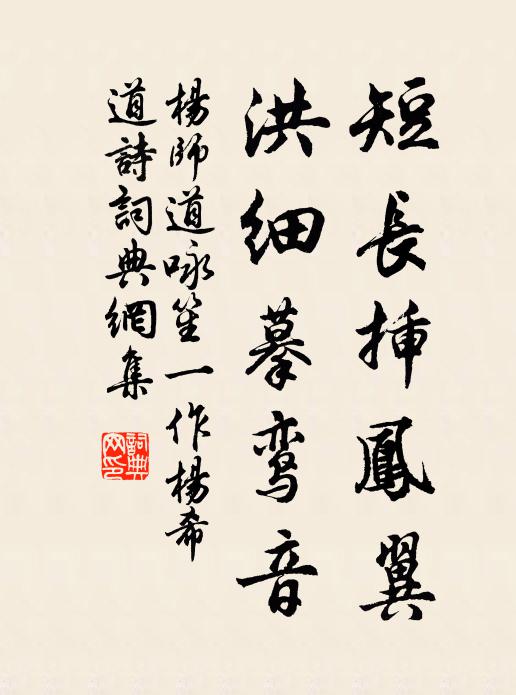 短長揷鳳翼
洪細摹鸾音
楊師道咏笙一作楊希
道詩詞典網集
詞典
网印